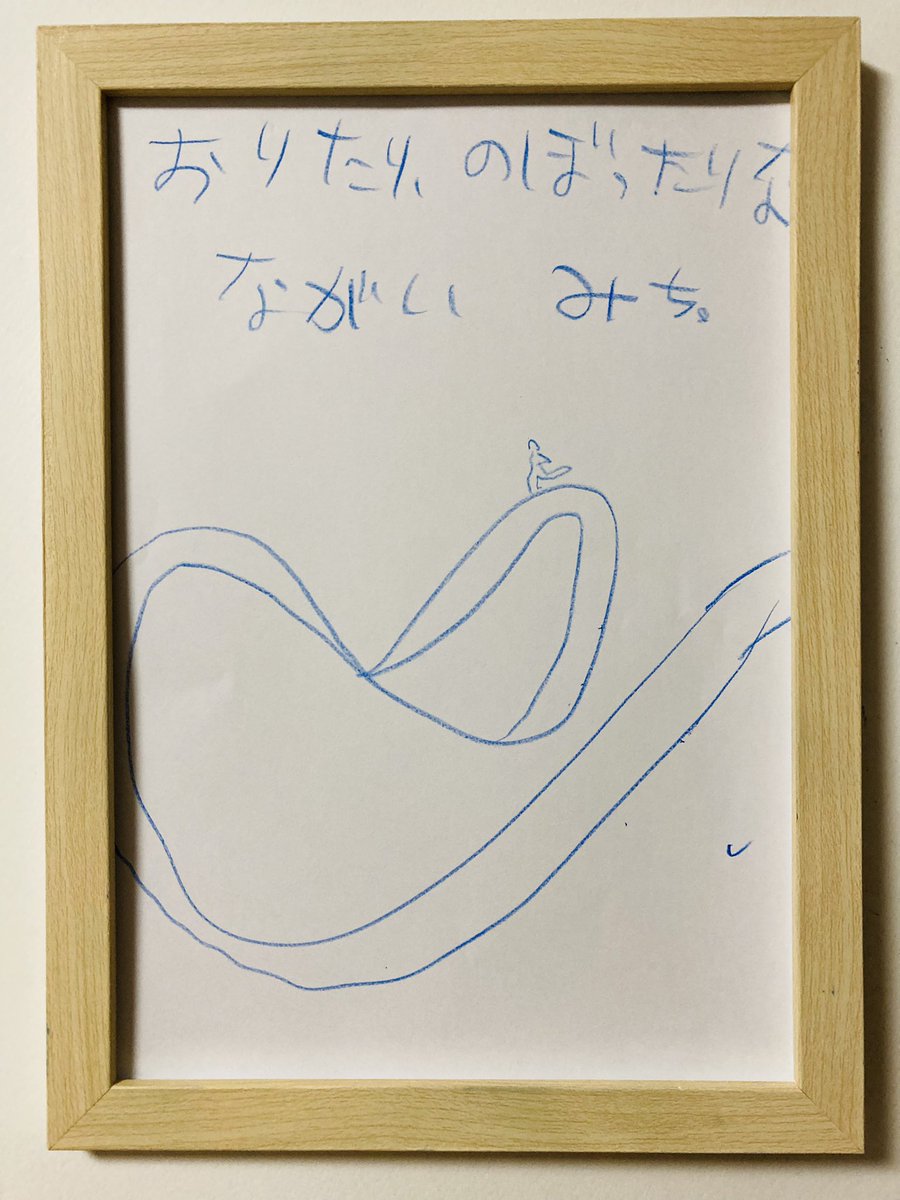 おりたり、のぼったりな
ながい みち。